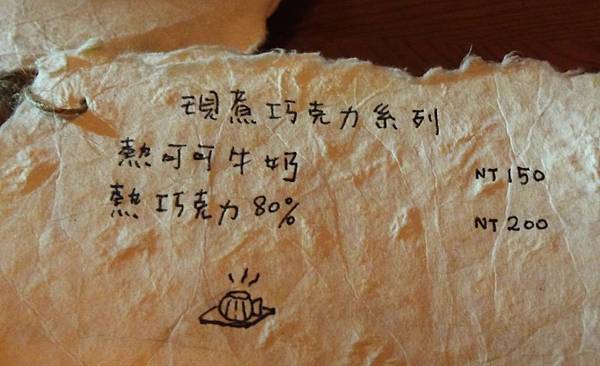 現煮巧克力系列
熱可可牛奶 NT 150
熱巧克力 80% NT 200